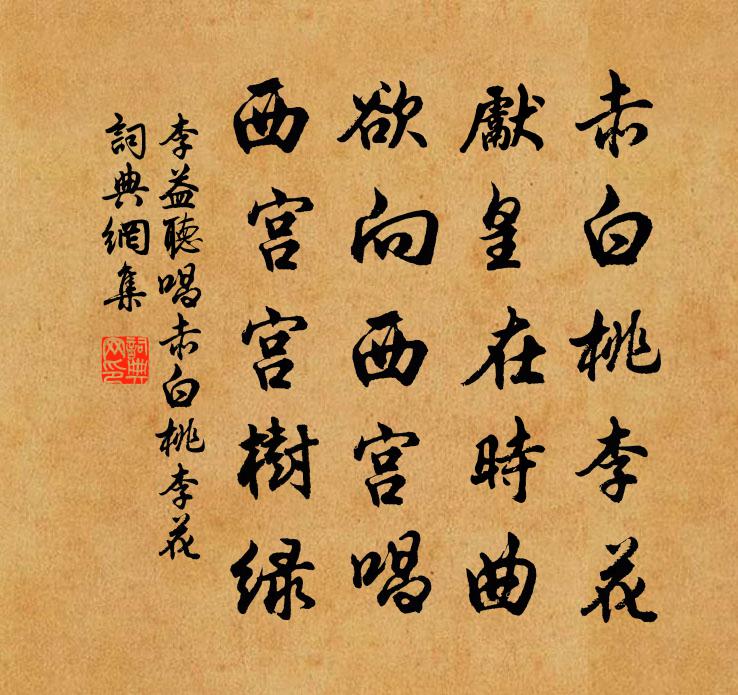 赤白桃李花
獻皇在時曲
欲向西宫唱
西宫宫樹緑
李益聽唱赤白桃李花
詞典網集
詞典网印